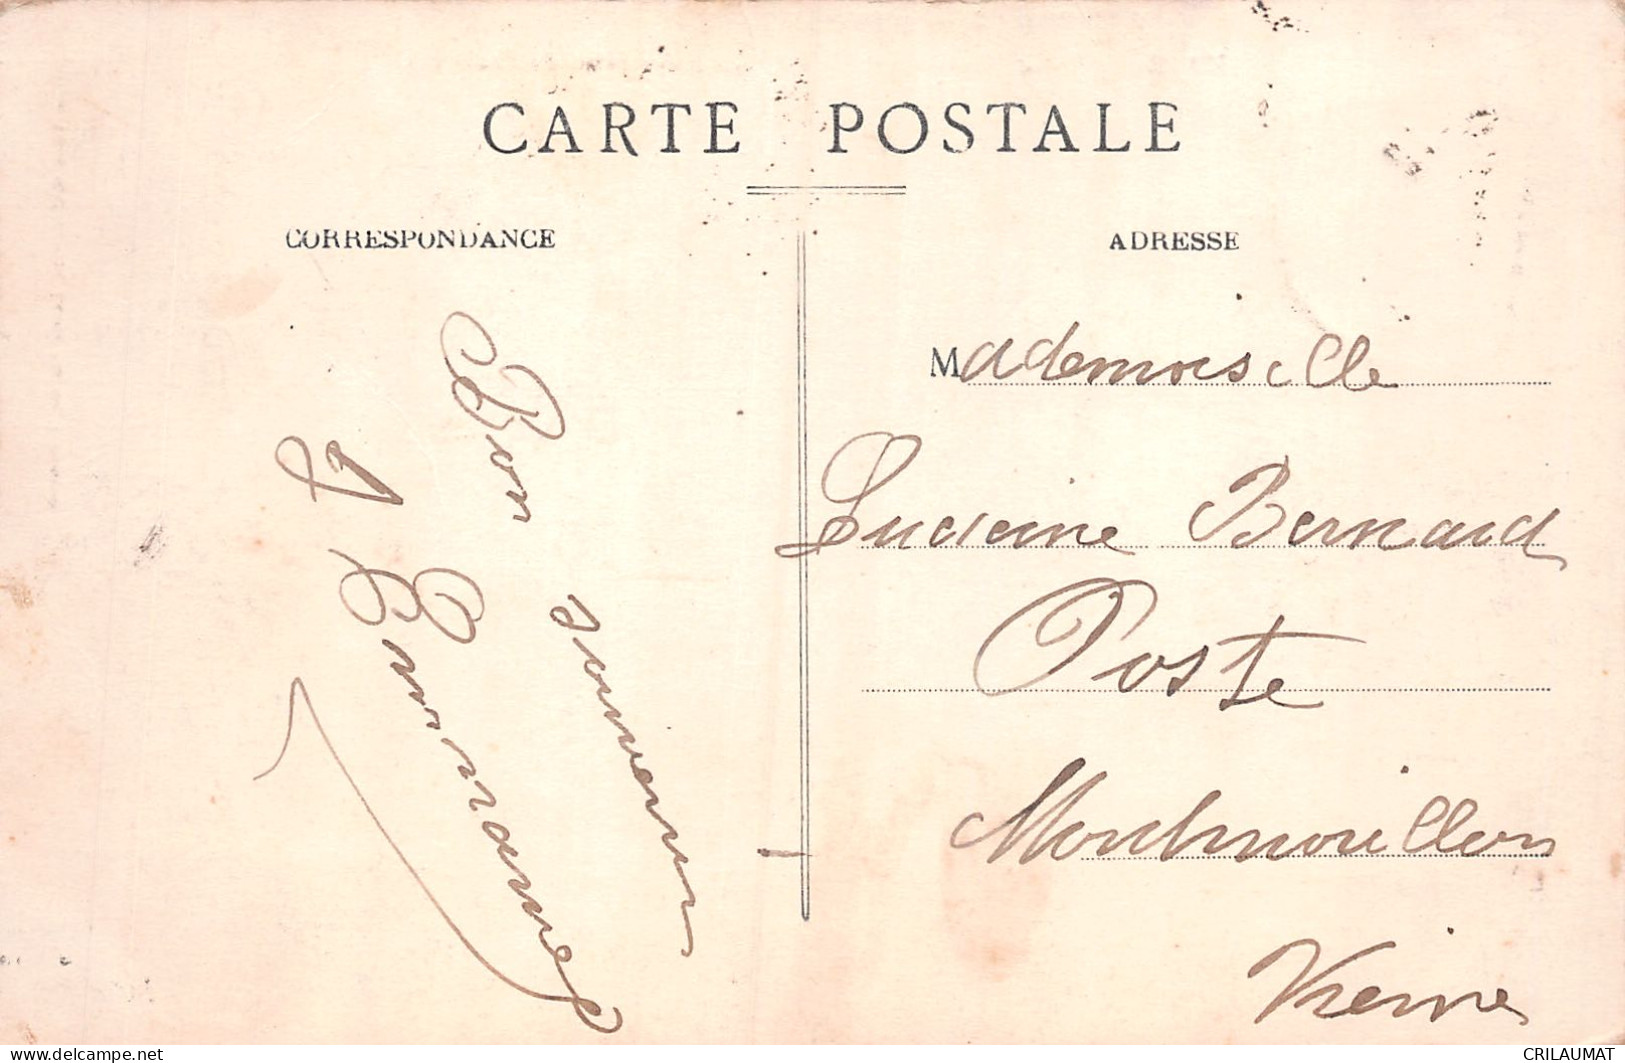 CARTE POSTALE
CORRESPONDANCE
ADRESSE
Bon souvenir
Mademoiselle
Lucienne Bernard
Poste
Montmorillon
Vienne
www.delcampe.net
CRILAUMAT